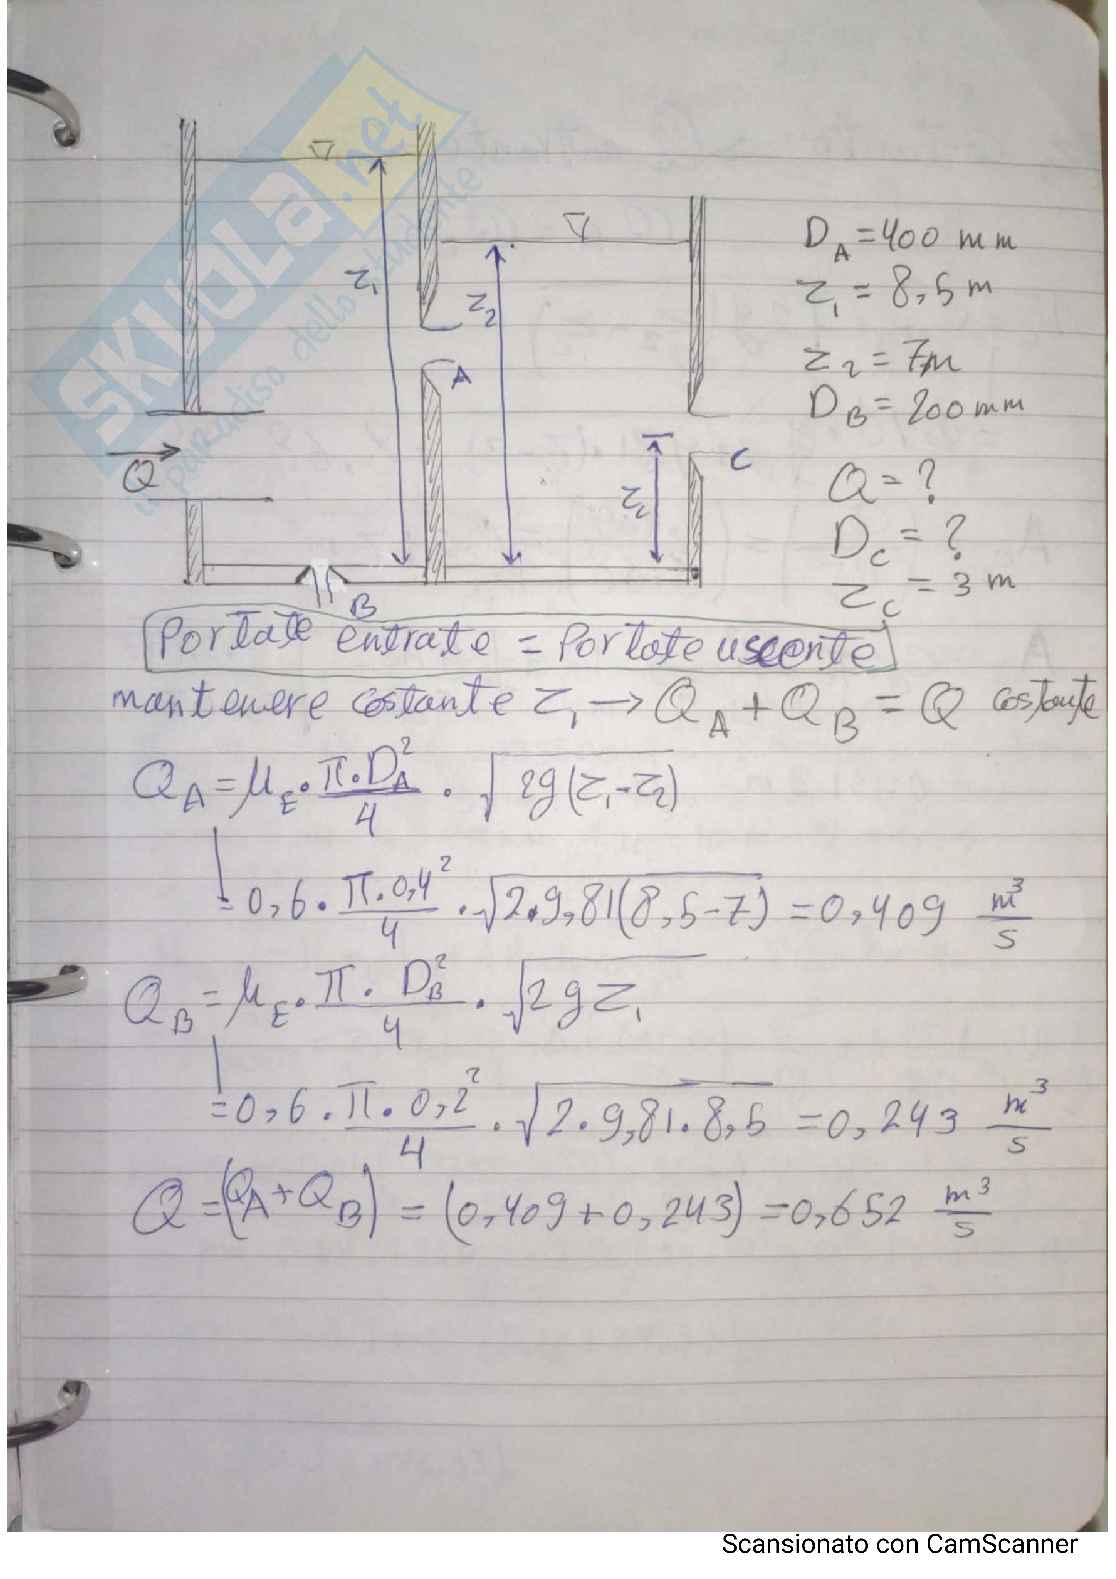 SKUOLA.net
il paradiso dello studente
z₁
z₂
A
Q
z_c
C
B
D_A = 400 mm
z₁ = 8,5 m
z₂ = 7m
D_B = 200 mm
Q = ?
D_C = ?
z_C = 3 m
Portate entrate = Portate uscente
mantenere costante z₁ → Q_A + Q_B = Q costante
Q_A = μ_E · π·D_A²/4 · √2g(z₁-z₂)
= 0,6 · π·0,4²/4 · √2·9,81(8,5-7) = 0,409 m³/s
Q_B = μ_E · π · D_B²/4 · √2gz₁
= 0,6 · π·0,2²/4 · √2·9,81·8,5 = 0,243 m³/s
Q = (Q_A + Q_B) = (0,409 + 0,243) = 0,652 m³/s
Scansionato con CamScanner